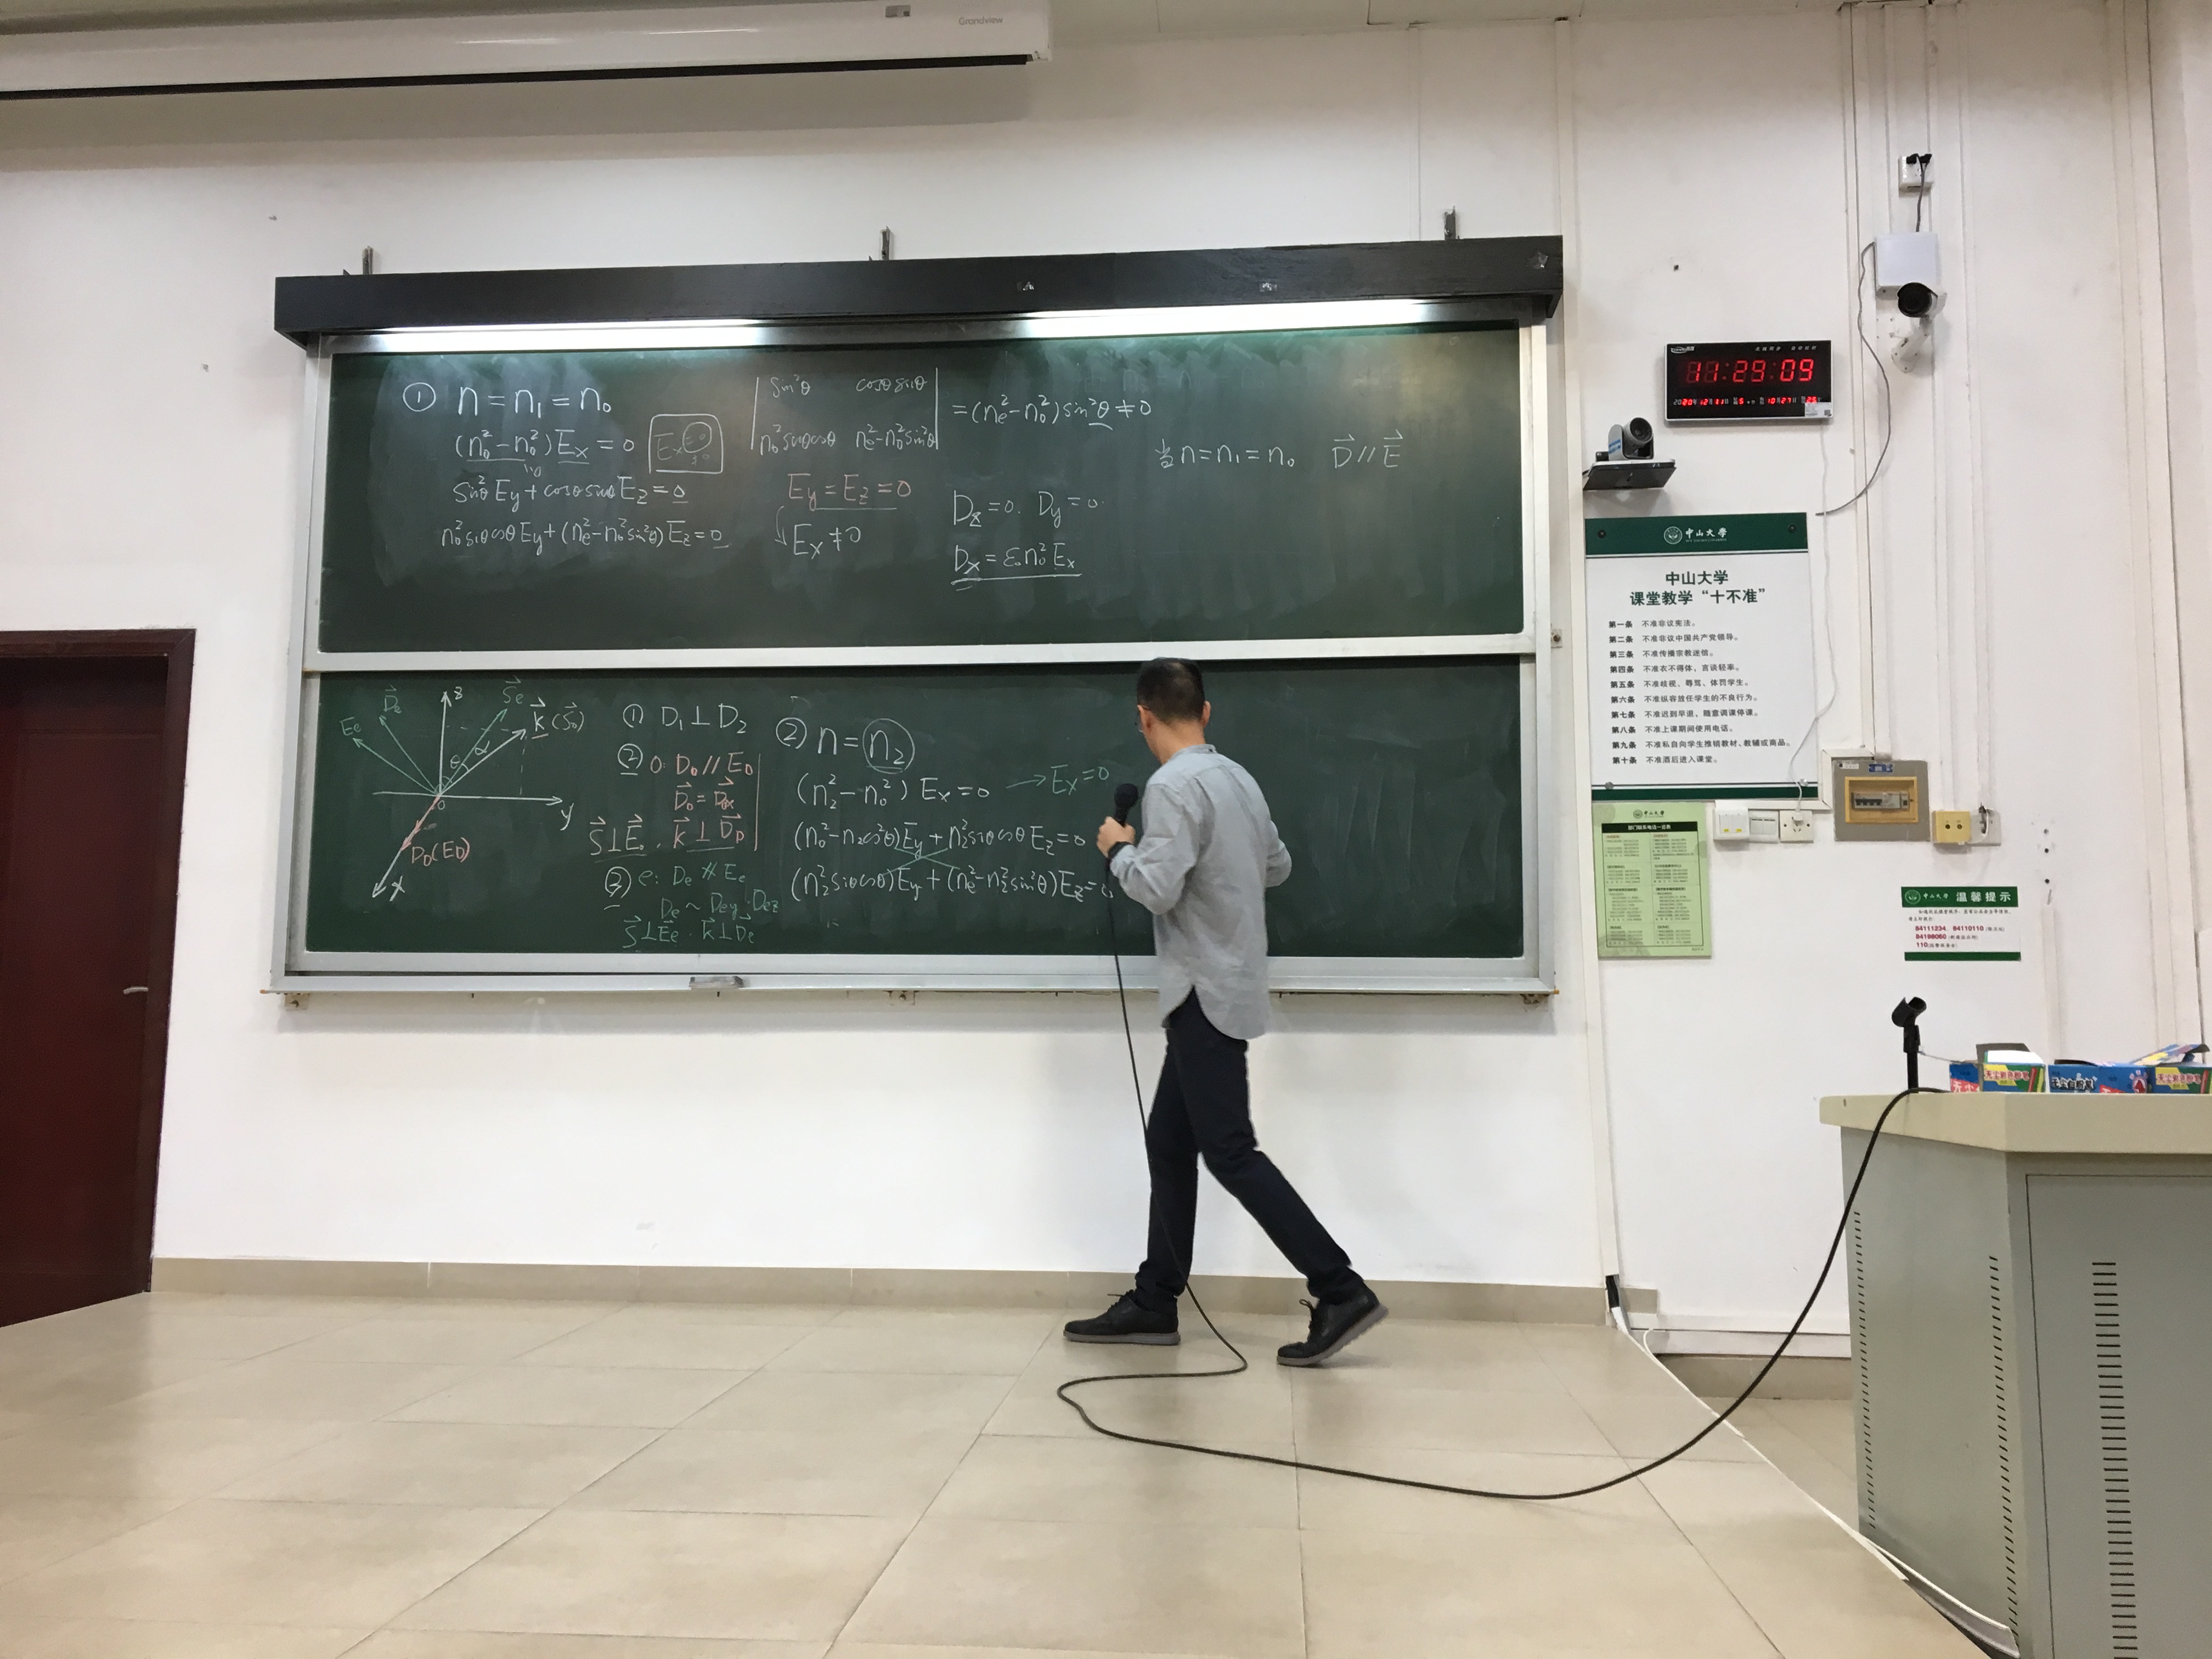 Grandview
① n = n₁ = n₀
(n₀² − n₀²) Eₓ = 0
sin²θ E_y + cosθ sinθ E_z = 0
n₀² sinθcosθ E_y + (n_e² − n₀² sin²θ) E_z = 0
| sin²θ cosθ sinθ |
| n₀² sinθcosθ n_e² − n₀² sin²θ | = (n_e² − n₀²) sin²θ ≠ 0
E_y = E_z = 0
Eₓ ≠ 0
D_z = 0. D_y = 0.
Dₓ = ε₀ n₀² Eₓ
当 n = n₁ = n₀ D⃗ // E⃗
E_e D⃗_e z S⃗_e k⃗ (S⃗₀)
θ α
0 y
D₀(E₀)
x
① D₁ ⊥ D₂
② o: D₀ // E₀
D⃗₀ = D⃗₀ₓ
S⃗ ⊥ E⃗₀ . k⃗ ⊥ D⃗₀
③ e: D_e ∦ E_e
D_e ~ D_ey . D_ez
S⃗ ⊥ E⃗_e . k⃗ ⊥ D⃗_e
② n = n₂
(n₂² − n₀²) Eₓ = 0 → Eₓ = 0
(n₀² − n₂² cos²θ) E_y + n₂² sinθcosθ E_z = 0
(n₂² sinθcosθ) E_y + (n_e² − n₂² sin²θ) E_z = 0
11:29:09
中山大学
中山大学
课堂教学“十不准”
第一条 不准非议宪法。
第二条 不准非议中国共产党领导。
第三条 不准传播宗教迷信。
第四条 不准衣不得体、言谈轻率。
第五条 不准歧视、辱骂、体罚学生。
第六条 不准纵容放任学生的不良行为。
第七条 不准迟到早退、随意调课停课。
第八条 不准上课期间使用电话。
第九条 不准私自向学生推销教材、教辅或商品。
第十条 不准酒后进入课堂。
部门联系电话一览表
中山大学 温馨提示
84111234、84110110
110